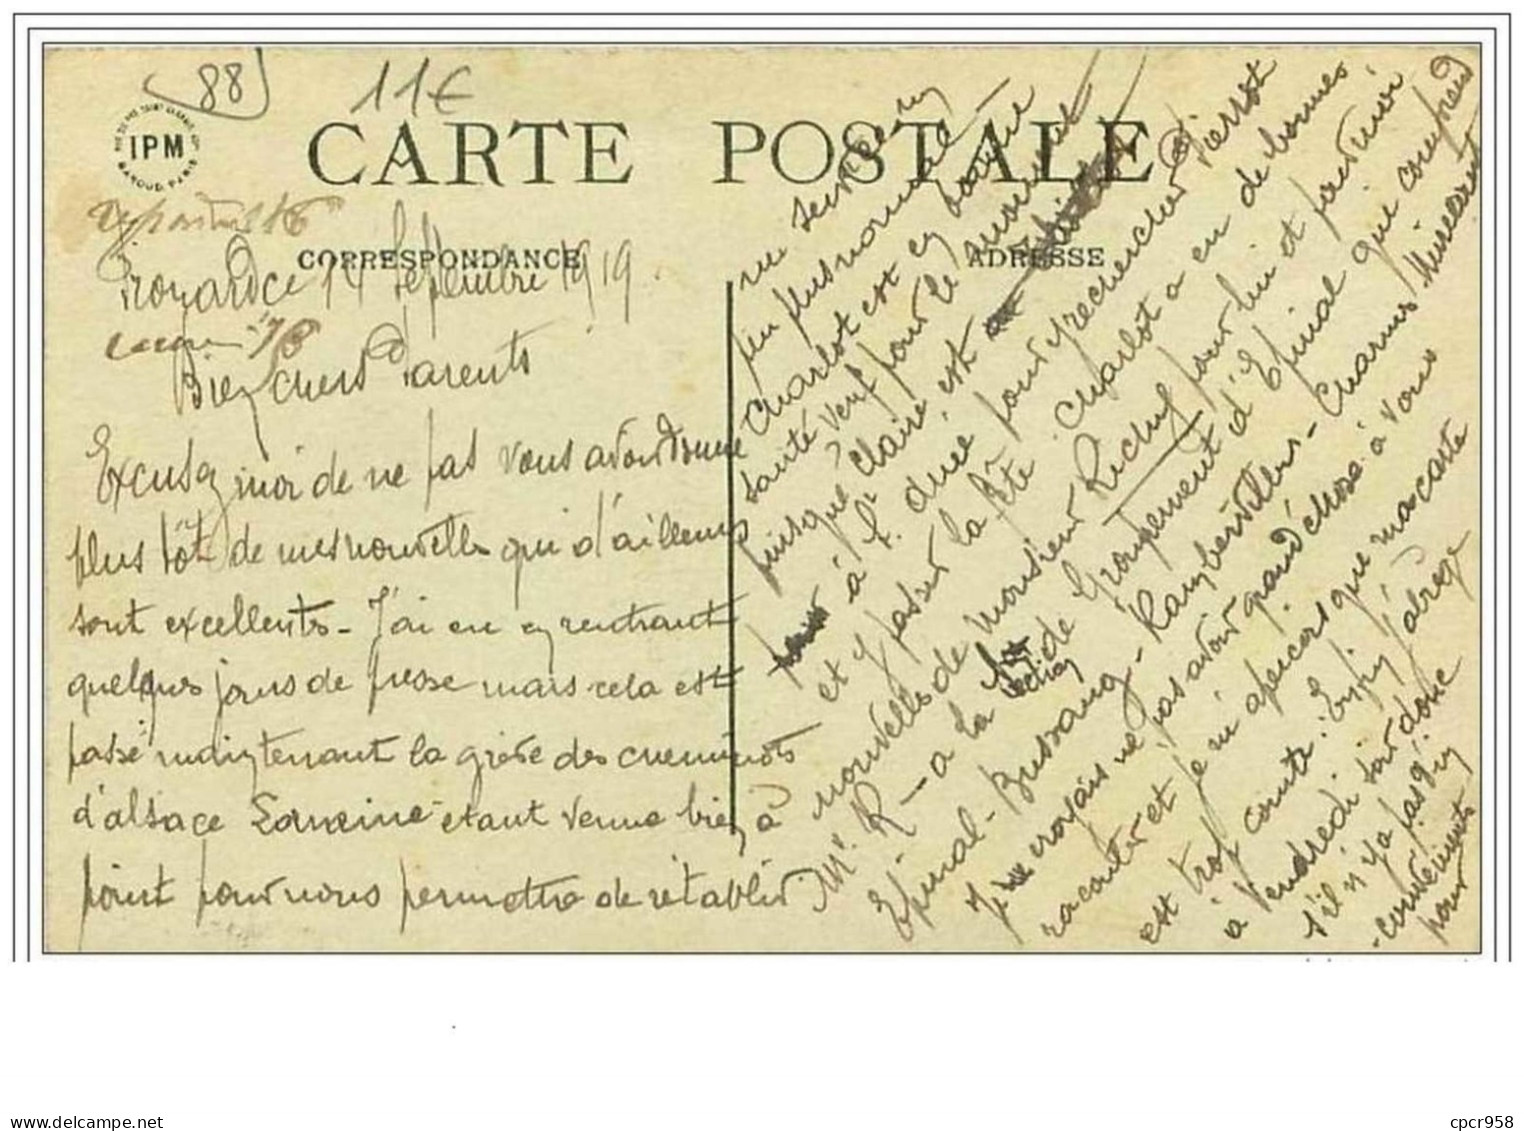 88
11€
IPM
CARTE POSTALE
CORRESPONDANCE
ADRESSE
14 Septembre 1919.
Bien chers Parents
Excusez moi de ne pas vous avoir donné
plus tôt de mes nouvelles qui d'ailleurs
sont excellentes - J'ai eu en rentrant
quelques jours de presse mais cela est
passé maintenant la grève des cheminots
d'alsace Lorraine étant venue bien à
point pour nous permettre de rétablir
un service
peu plus normal -
Charlot est en bonne
santé sauf pour le
puisque Claire est
à
et y passer la fête. Charlot a eu de bonnes
nouvelles de Monsieur Richy pour lui et pour moi
Mr R - a la section de Groupement d'Epinal qui comprend
Epinal - Bussang - Rambervillers - Charmes Mirecourt
Je croyais ne pas avoir grand chose à vous
raconter et je m'aperçois que ma carte
est trop courte. Enfin j'abrège
à Vendredi soir donc
s'il n'y a pas d'in
-convénients
pour
cpcr958